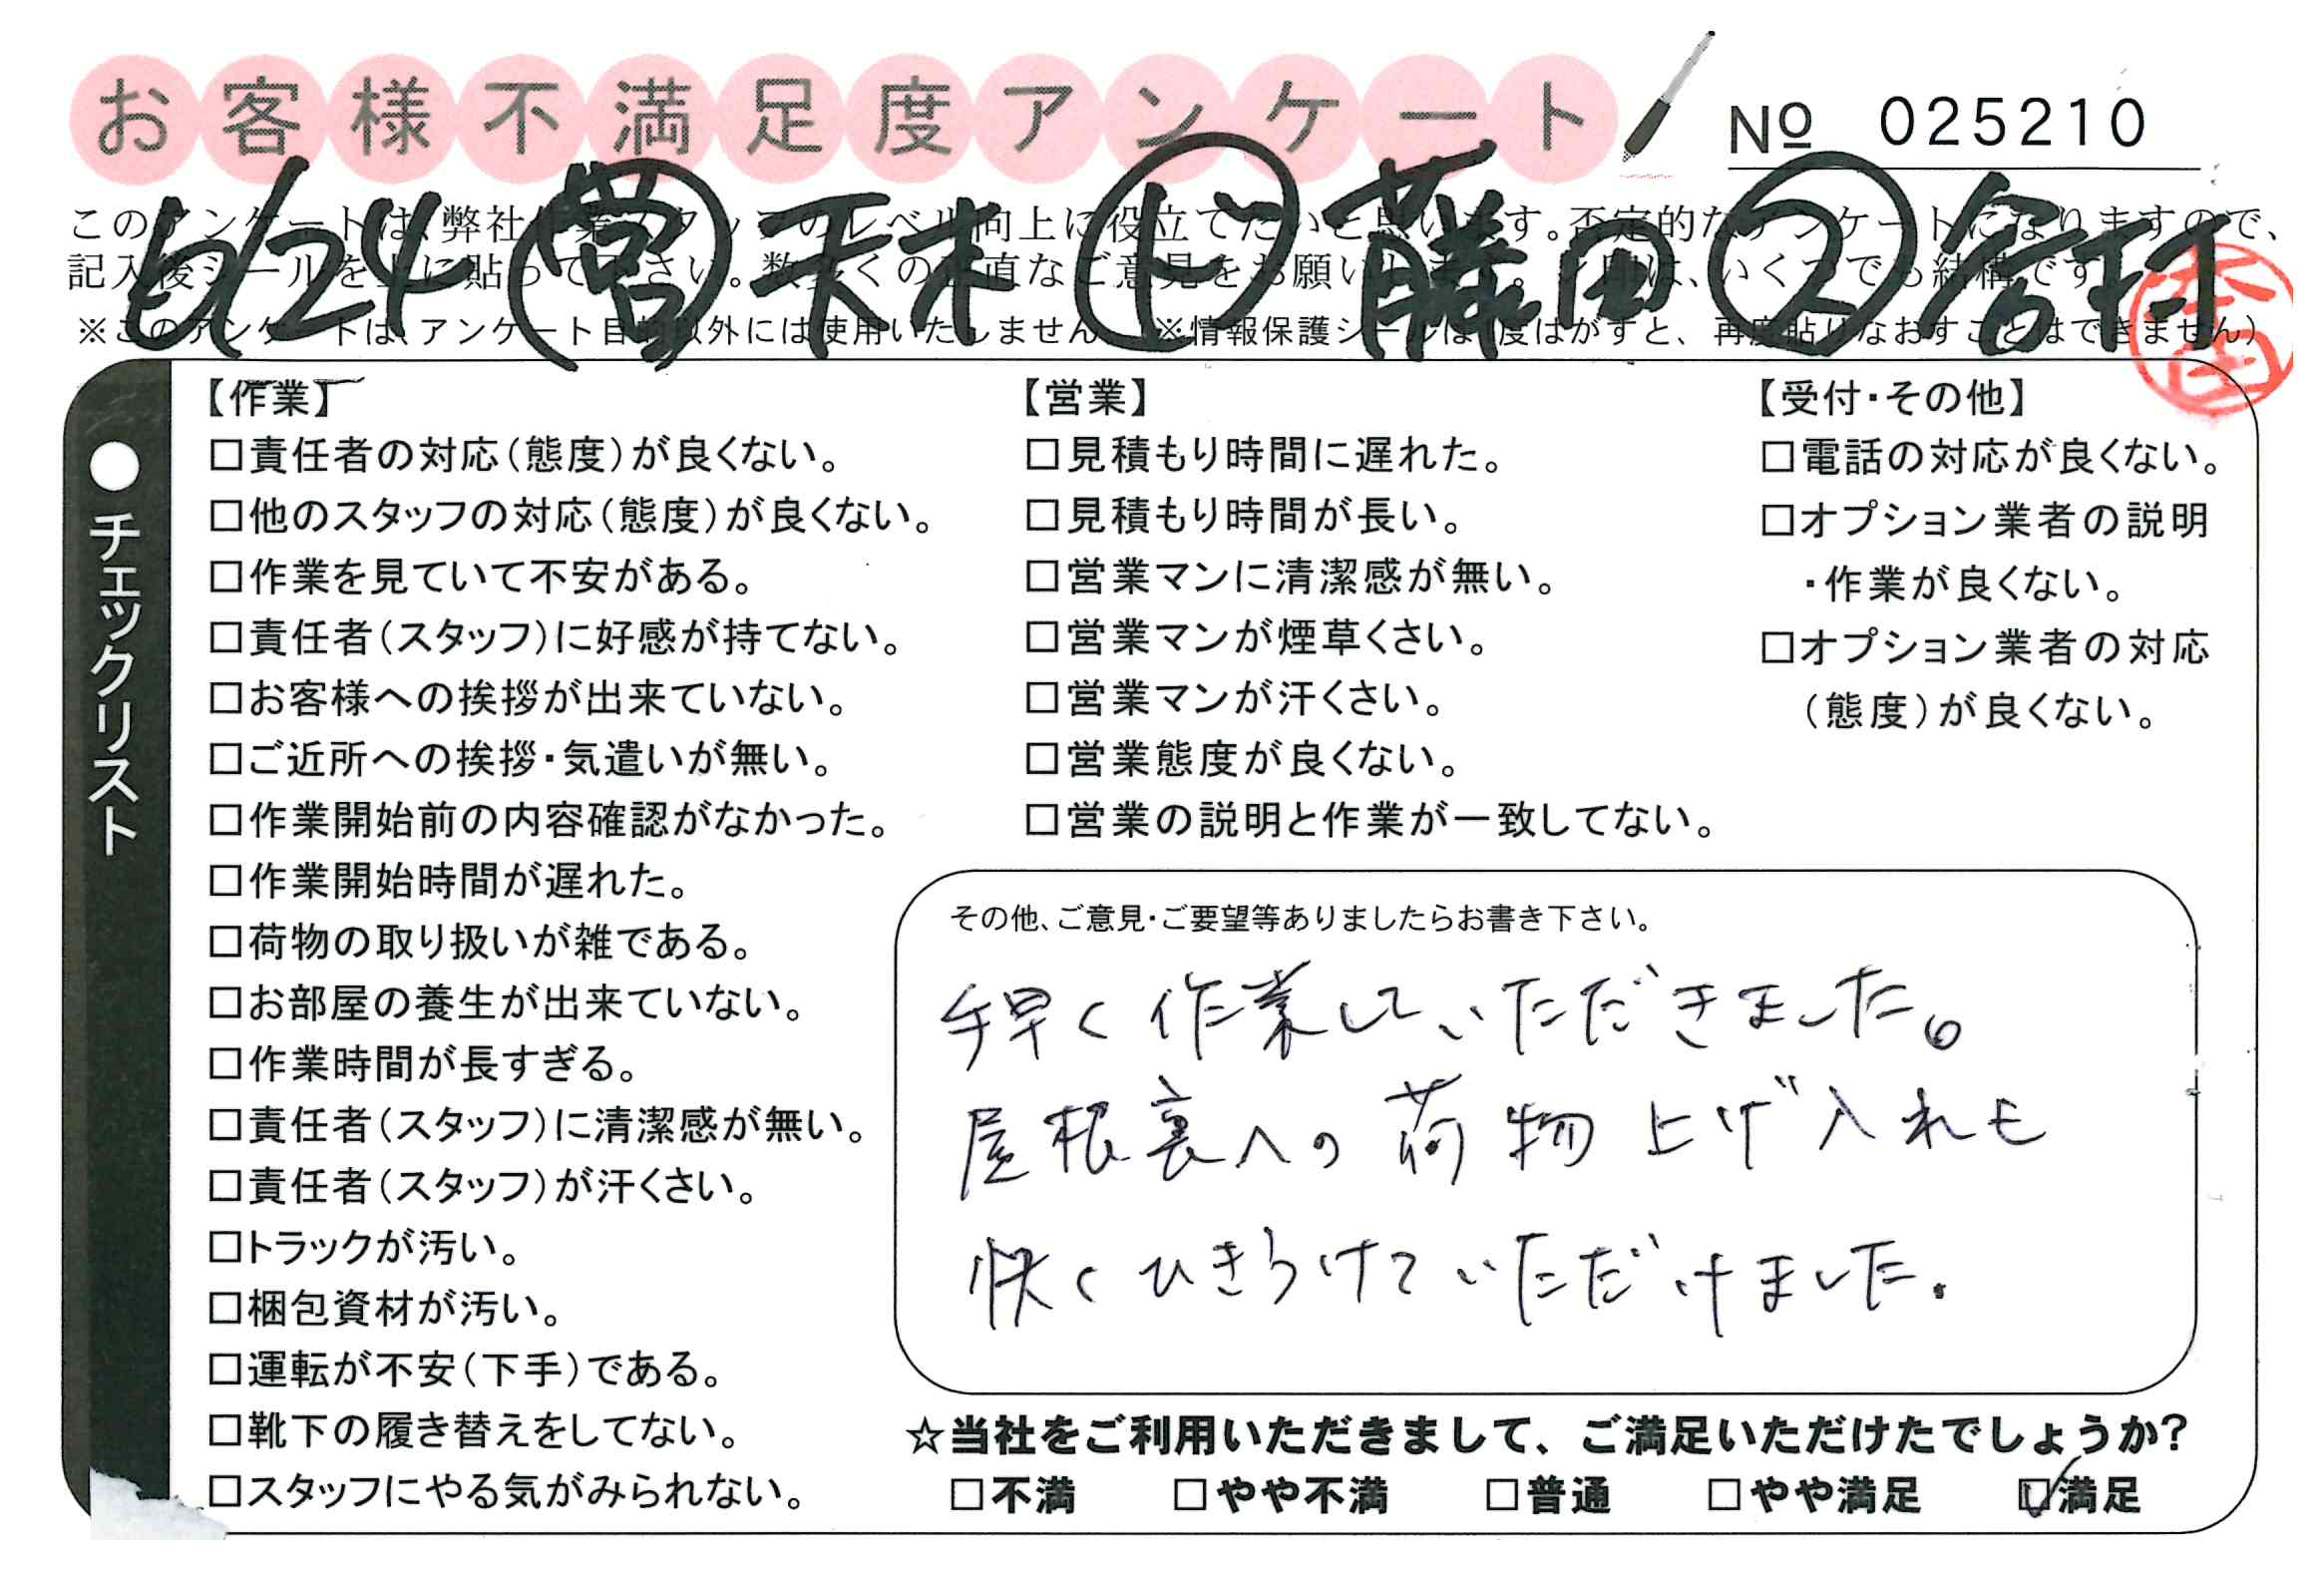 お客様不満足度アンケート
No 025210
6/24 営 天木 ド 藤田 2 谷村
このアンケートは、弊社作業スタッフのレベル向上に役立てたいと思います。否定的なアンケートになりますので、
記入後シールを上に貼って下さい。数多くの正直なご意見をお願いします。レ印は、いくつでも結構です
※このアンケートは、アンケート目的以外には使用いたしません ※情報保護シールは1度はがすと、再度貼りなおすことはできません)
●チェックリスト
【作業】
□責任者の対応(態度)が良くない。
□他のスタッフの対応(態度)が良くない。
□作業を見ていて不安がある。
□責任者(スタッフ)に好感が持てない。
□お客様への挨拶が出来ていない。
□ご近所への挨拶・気遣いが無い。
□作業開始前の内容確認がなかった。
□作業開始時間が遅れた。
□荷物の取り扱いが雑である。
□お部屋の養生が出来ていない。
□作業時間が長すぎる。
□責任者(スタッフ)に清潔感が無い。
□責任者(スタッフ)が汗くさい。
□トラックが汚い。
□梱包資材が汚い。
□運転が不安(下手)である。
□靴下の履き替えをしてない。
□スタッフにやる気がみられない。
【営業】
□見積もり時間に遅れた。
□見積もり時間が長い。
□営業マンに清潔感が無い。
□営業マンが煙草くさい。
□営業マンが汗くさい。
□営業態度が良くない。
□営業の説明と作業が一致してない。
【受付・その他】
□電話の対応が良くない。
□オプション業者の説明
・作業が良くない。
□オプション業者の対応
(態度)が良くない。
その他、ご意見・ご要望等ありましたらお書き下さい。
手早く作業していただきました。
屋根裏への荷物上げ入れも
快くひきうけていただけました。
☆当社をご利用いただきまして、ご満足いただけたでしょうか?
□不満 □やや不満 □普通 □やや満足 ☑満足